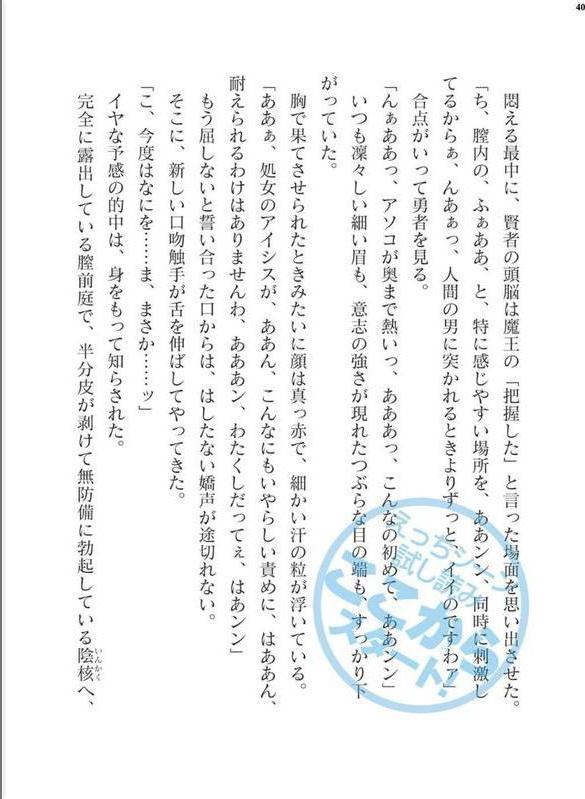 40
悶える最中に、賢者の頭脳は魔王の「把握した」と言った場面を思い出させた。
「ち、膣内の、ふぁああ、と、特に感じやすい場所を、ああンン、同時に刺激し
てるからぁ、んあぁっ、人間の男に突かれるときよりずっと、イイのですわァ」
合点がいって勇者を見る。
「んぁああっ、アソコが奥まで熱いっ、あああっ、こんなの初めて、ああンン」
いつも凜々しい細い眉も、意志の強さが現れたつぶらな目の端も、すっかり下
がっていた。
胸で果てさせられたときみたいに顔は真っ赤で、細かい汗の粒が浮いている。
「ああぁ、処女のアイシスが、ああん、こんなにもいやらしい責めに、はああん、
耐えられるわけはありませんわ、あああン、わたくしだってぇ、はあンン」
もう屈しないと誓い合った口からは、はしたない嬌声が途切れない。
そこに、新しい口吻触手が舌を伸ばしてやってきた。
「こ、今度はなにを……ま、まさか……ッ」
イヤな予感の的中は、身をもって知らされた。
完全に露出している膣前庭で、半分皮が剥けて無防備に勃起している陰核へ、
いんかく
えっちシーン
試し読み
ここから
スタート!